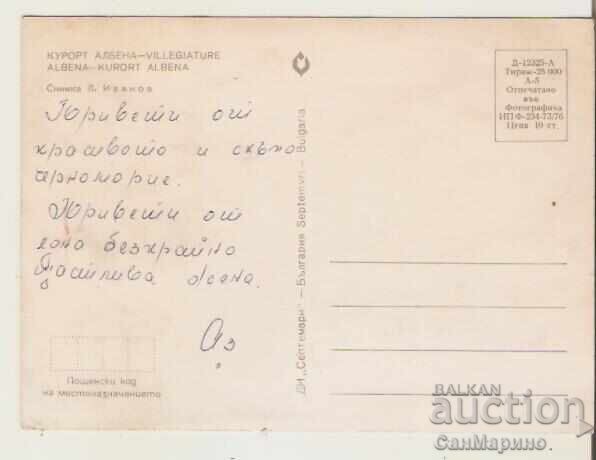 КУРОРТ АЛБЕНА—VILLEGIATURE
ALBENA—KURORT ALBENA
Снимка В. Иванов
Привети от
красивото и скъпо
черноморие.
Привети от
една безкрайно
щастлива жена.
Аз
Пощенски код
на местоназначението
ДИ „Септември" — България Septemvri — Bulgaria
Д-12325-А
Тираж-25 000
А-5
Отпечатано
във
Фотографика
ИПФ-234-73/76
Цена 10 ст.
BALKAN
auction
СанМарино.